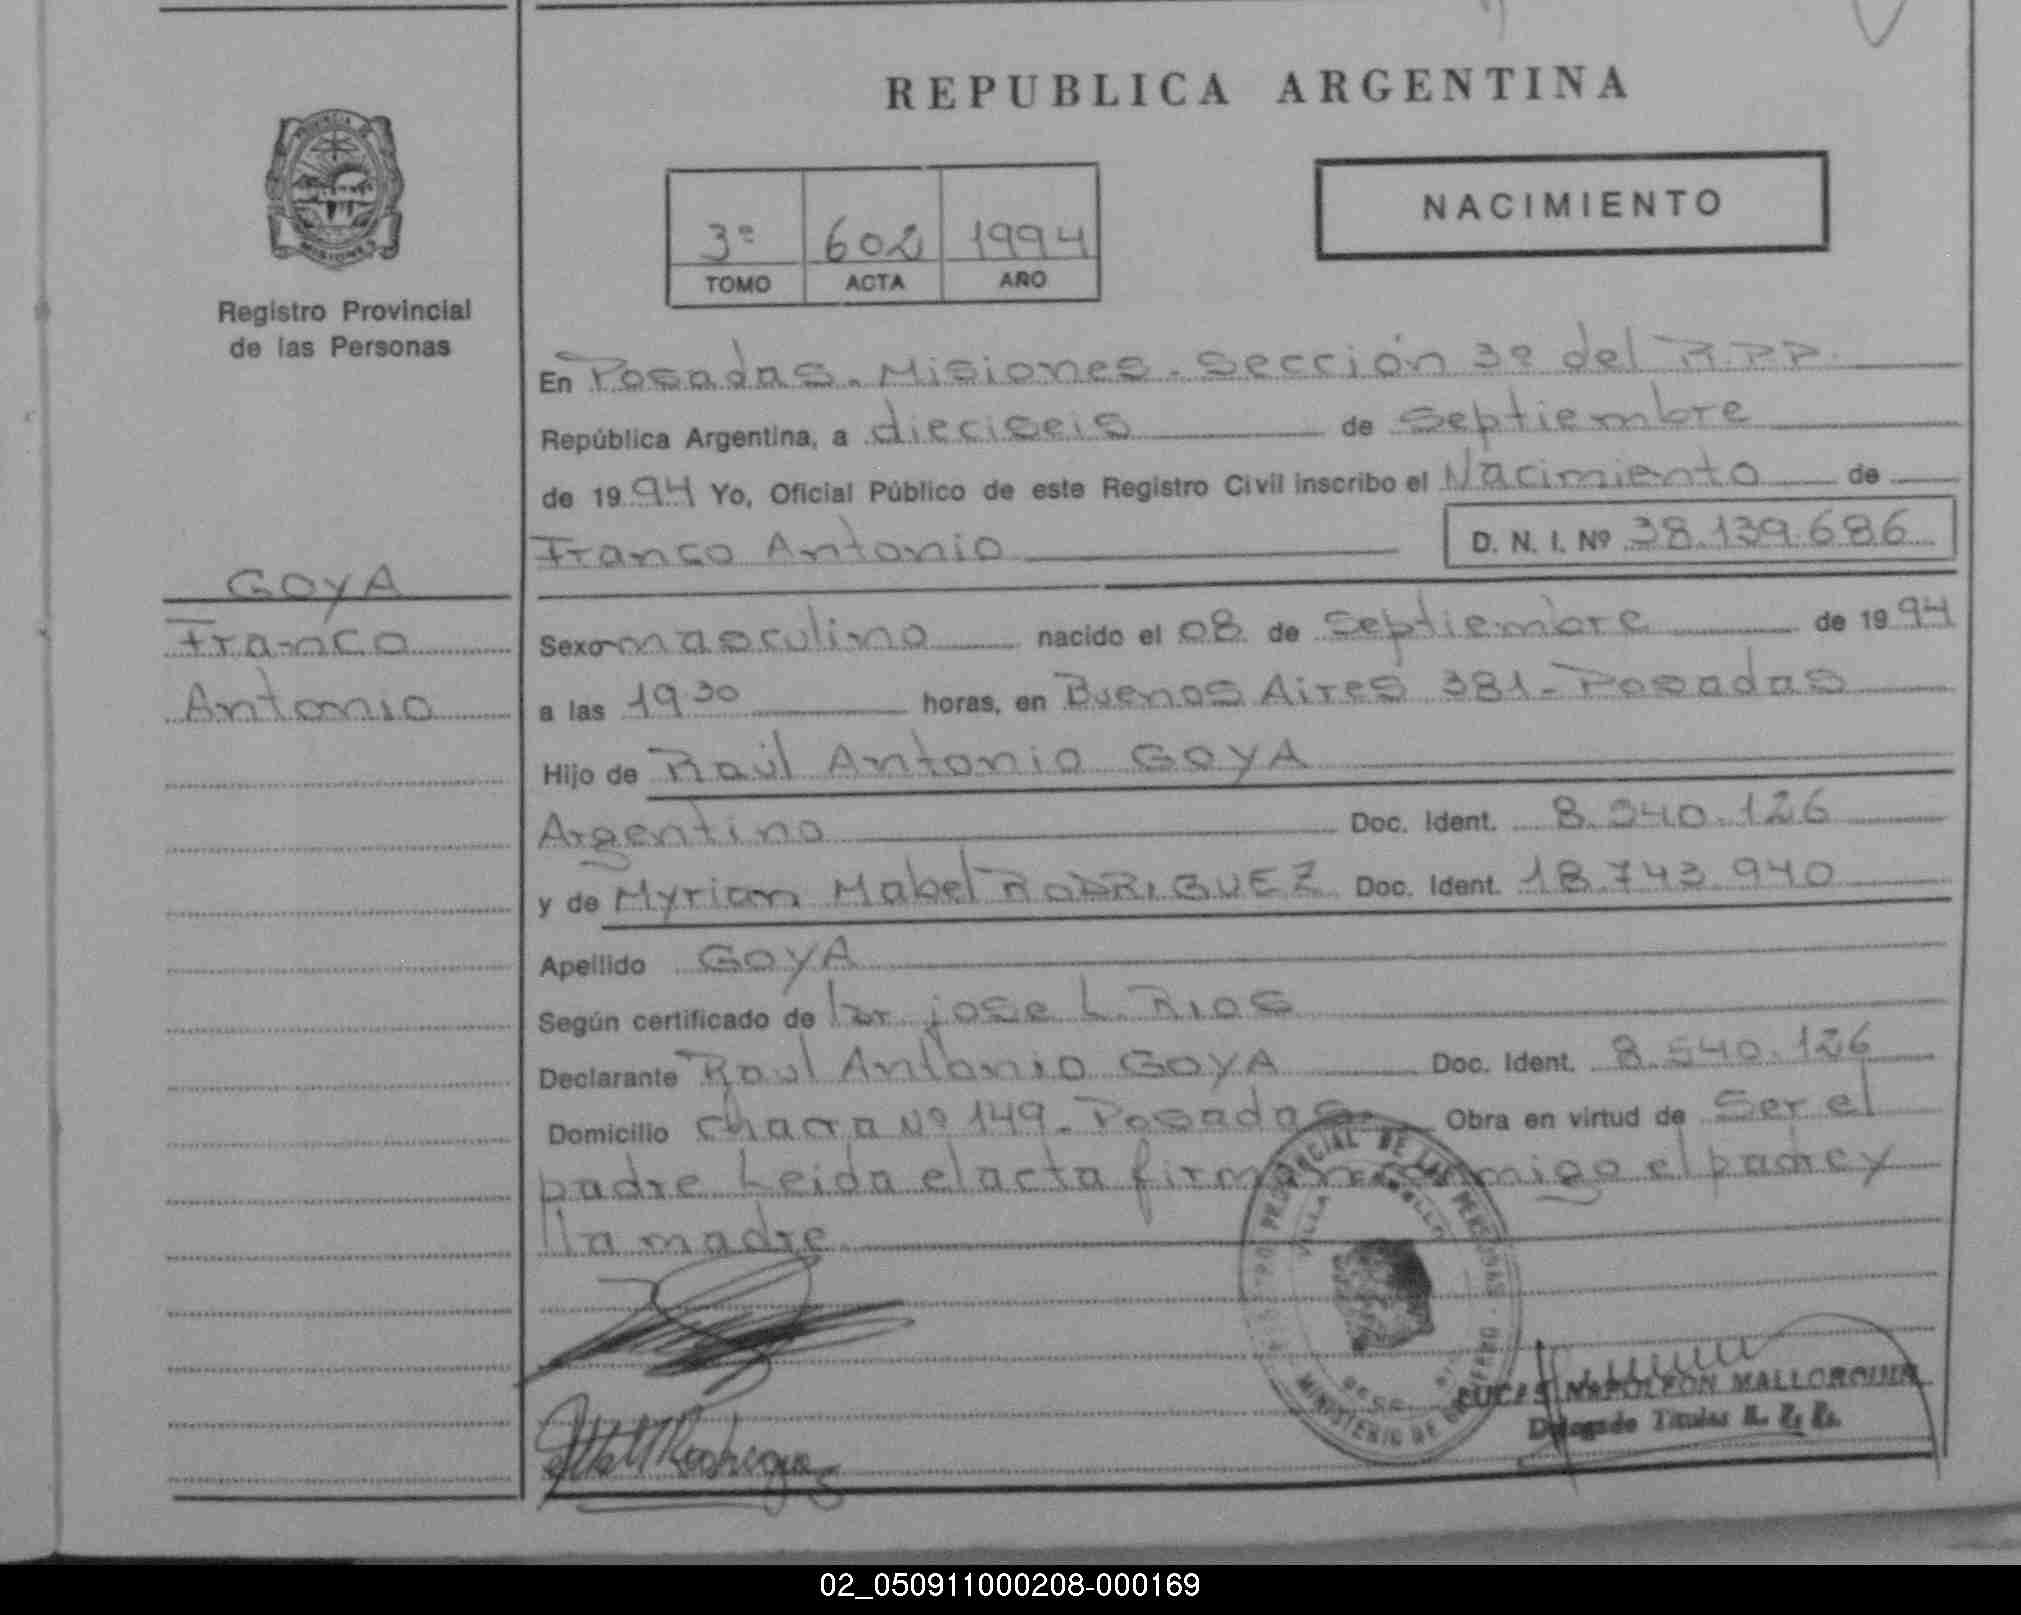 REPUBLICA ARGENTINA
PROVINCIA DE
MISIONES
Registro Provincial
de las Personas
NACIMIENTO
3º 602 1994
TOMO ACTA AÑO
En Posadas. Misiones. Sección 3º del R.P.P.
República Argentina, a dieciseis de Septiembre
de 1994 Yo, Oficial Público de este Registro Civil inscribo el Nacimiento de
Franco Antonio D. N. I. Nº 38.139.686
GOYA
Franco
Antonio
Sexo masculino nacido el 08 de Septiembre de 1994
a las 19 30 horas, en Buenos Aires 381 - Posadas
Hijo de Raúl Antonio GOYA
Argentino Doc. Ident. 8.540.126
y de Myrian Mabel RODRIGUEZ Doc. Ident. 18.743.940
Apellido GOYA
Según certificado de Dr. jose L. Rios
Declarante Raul Antonio GOYA Doc. Ident. 8.540.126
Domicilio chacra Nº 149. Posadas Obra en virtud de Ser el
padre Leida el acta firman conmigo el padre y
la madre
PROVINCIAL DE LAS PERSONAS
VILLA
MINISTERIO DE GOBIERNO
Rodriguez
LUCAS NAPOLEON MALLORQUIN
Delegado Titular R. P. P.
02_050911000208-000169